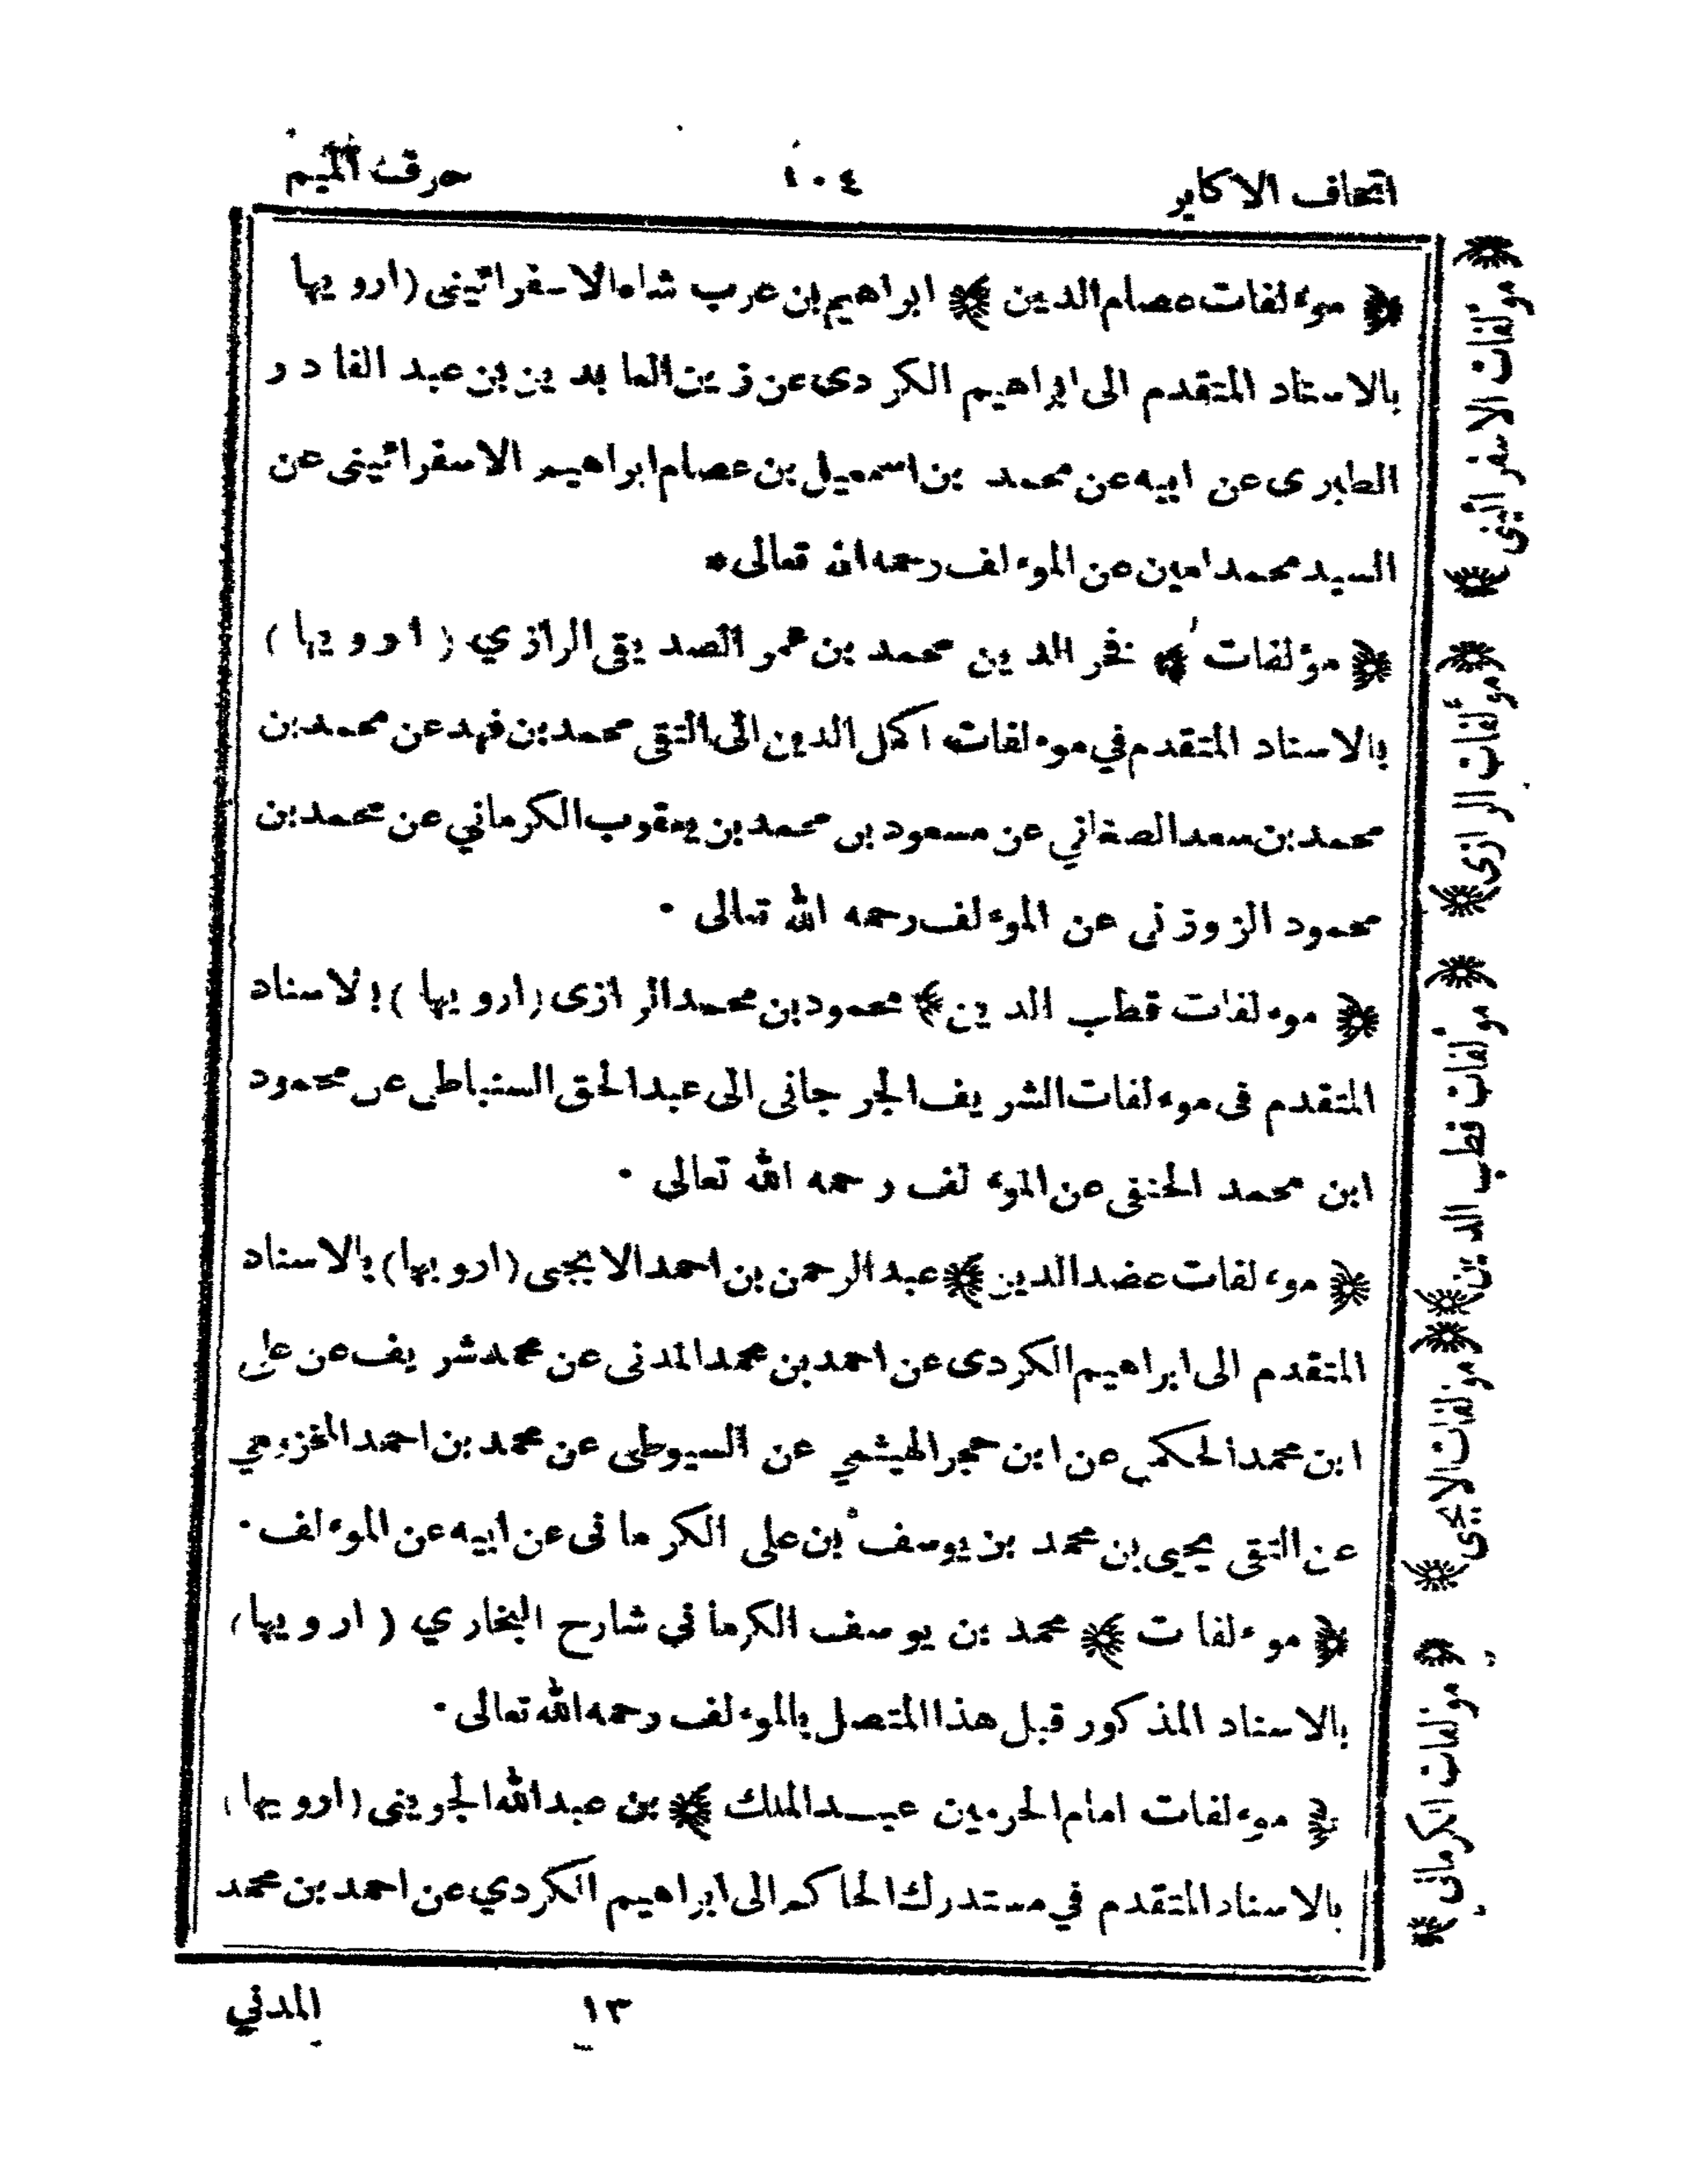 اتحاف الاكابر
١٠٤
حرف الميم
﴿ موءلفات عصام الدين ﴾ ابراهيم بن عرب شاه الاسفرائيني (ارويها
بالاسناد المتقدم الى ابراهيم الكردى عن زين العابدين بن عبد القادر
الطبرى عن ابيه عن محمد بن اسمعيل بن عصام ابراهيم الاسفرائينى عن
السيد محمد امين عن الموءلف رحمه الله تعالى*
﴿ مؤلفات ﴾ فخر الدين محمد بن عمر الصديقى الرازي (ارويها)
بالاسناد المتقدم في موءلفات اكمل الدين الى التقى محمد بن فهد عن محمد بن
محمد بن سعد الصغاني عن مسعود بن محمد بن يعقوب الكرماني عن محمد بن
محمود الزوزنى عن الموءلف رحمه الله تعالى ٠
﴿ موءلفات قطب الدين ﴾ محمود بن محمد الرازى (ارويها) بالاسناد
المتقدم فى موءلفات الشريف الجرجانى الى عبد الحق السنباطى عن محمود
ابن محمد الحنفى عن الموءلف رحمه الله تعالى ٠
﴿ موءلفات عضد الدين ﴾ عبد الرحمن بن احمد الايجى (ارويها) بالاسناد
المتقدم الى ابراهيم الكردى عن احمد بن محمد المدنى عن محمد شريف عن على
ابن محمد الحكمي عن ابن حجر الهيثمي عن السيوطى عن محمد بن احمد المخزومي
عن التقى يحيى بن محمد بن يوسف بن على الكرمانى عن ابيه عن الموءلف ٠
﴿ موءلفات ﴾ محمد بن يوسف الكرماني شارح البخاري (ارويها)
بالاسناد المذكور قبل هذا المتصل بالموءلف رحمه الله تعالى ٠
﴿ موءلفات امام الحرمين عبد الملك ﴾ بن عبد الله الجوينى (ارويها)
بالاسناد المتقدم في مستدرك الحاكم الى ابراهيم الكردي عن احمد بن محمد
﴿ موءلفات الاسفرائينى ﴾
﴿ موءلفات الرازى ﴾
﴿ موءلفات قطب الدين ﴾
﴿ موءلفات الايجى ﴾
﴿ موءلفات الكرمانى ﴾
١٣
المدني